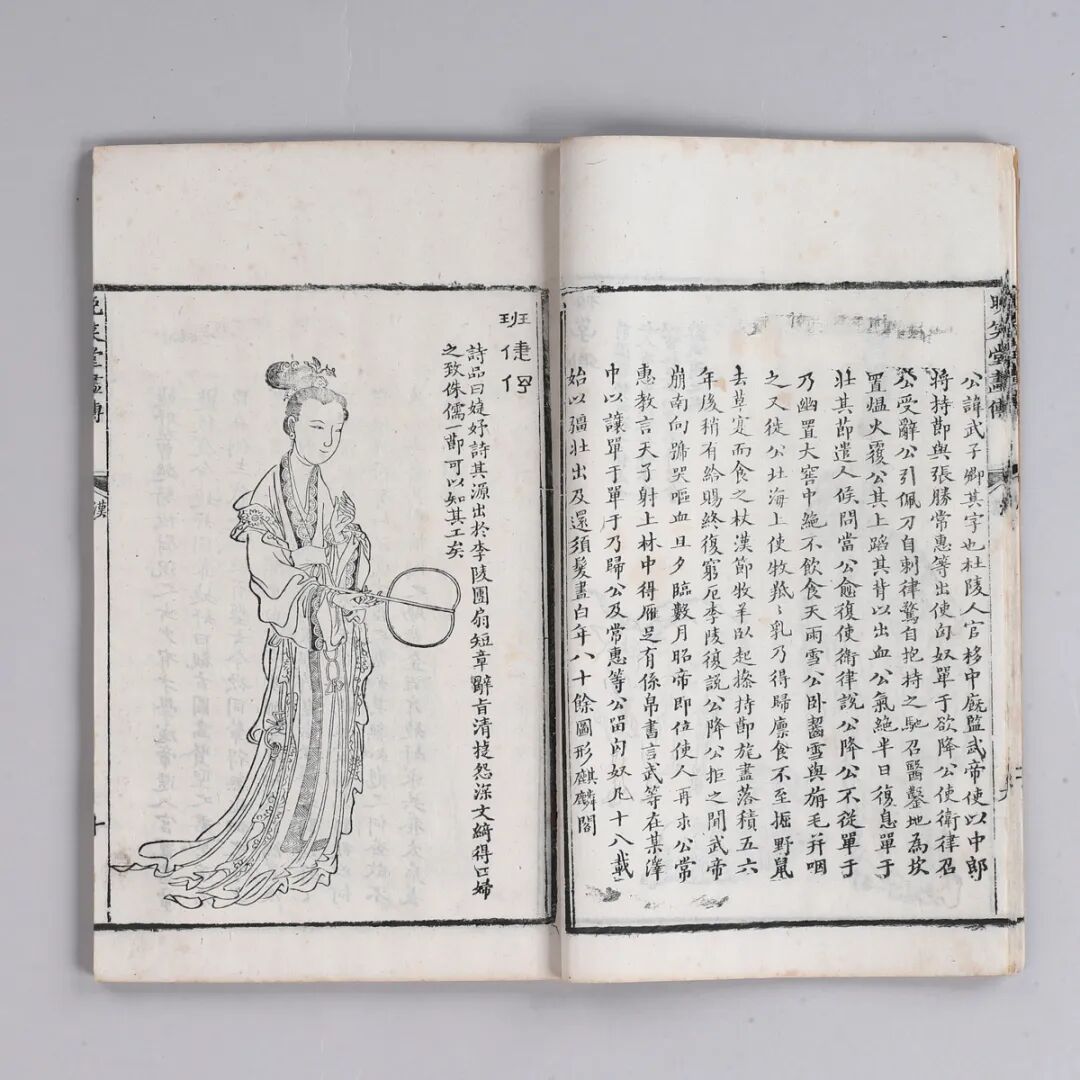 晚笑堂畫傳
公諱武子卿其字也杜陵人官移中廐監武帝使以中郎
將持節與張勝常惠等出使匈奴單于欲降公使衛律召
公受辭公引佩刀自刺律驚自抱持之馳召醫鑿地為坎
置煴火覆公其上蹈其背以出血公氣絶半日復息單于
壯其節遣人候問當公愈復使衛律說公降公不從單于
乃幽置大窖中絶不飲食天雨雪公卧齧雪與旃毛并咽
之又徙公北海上使牧羝〻乳乃得歸廩食不至掘野鼠
去草寔而食之杖漢節牧羊卧起操持節旄盡落積五六
年後稍有給賜終復窮厄李陵復說公降公拒之聞武帝
崩南向號哭嘔血旦夕臨數月昭帝即位使人再求公常
惠教言天子射上林中得雁足有係帛書言武等在某澤
中以讓單于單于乃歸公及常惠等公畱匈奴凡十八載
始以彊壮出及還須髮盡白年八十餘圖形麒麟閣
班倢伃
詩品曰婕妤詩其源出於李陵團扇短章辭旨清捷怨深文綺得匹婦
之致侏儒一節可以知其工矣
晚笑堂畫傳
漢
十